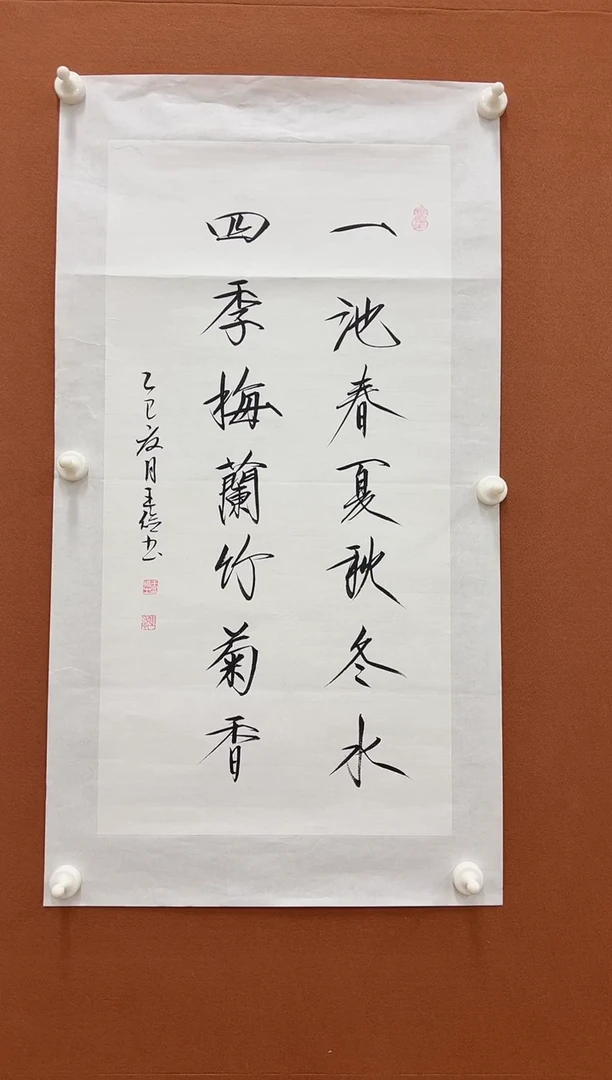 一池春夏秋冬水
四季梅蘭竹菊香
乙巳夜月王信书